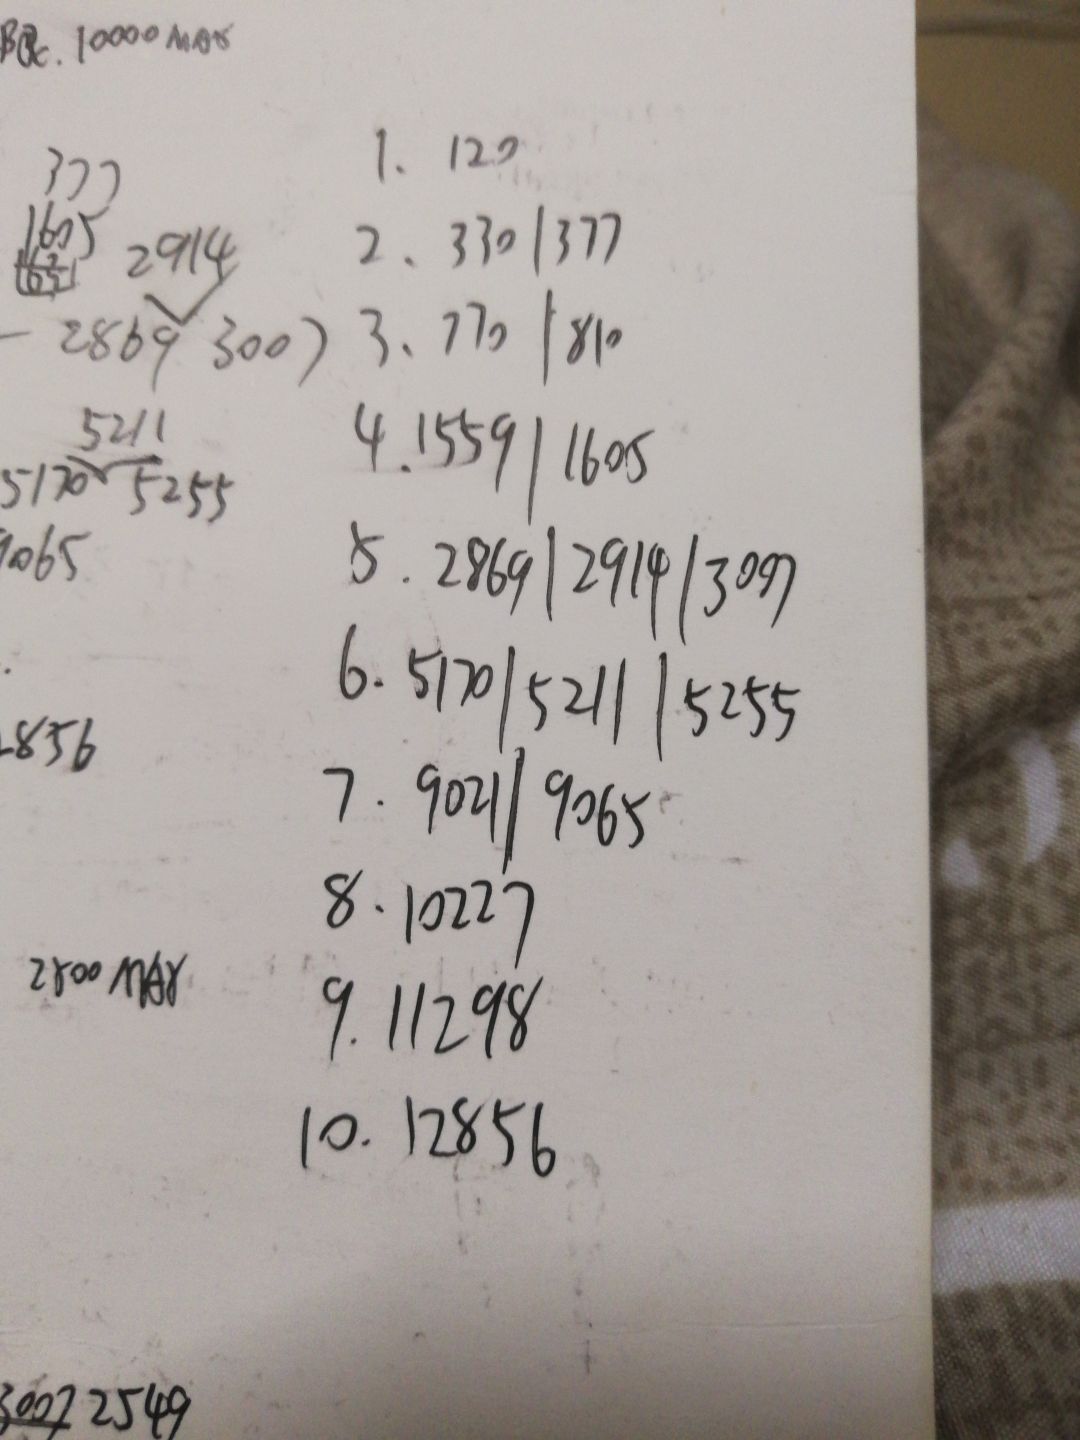 10000 MAX
377
1605
2914
2869 3007
5211
5170 5255
9065
2856
2800 MAX
3007 2549
1. 120
2. 330 | 377
3. 770 | 810
4. 1559 | 1605
5. 2869 | 2914 | 3007
6. 5170 | 5211 | 5255
7. 9021 | 9065
8. 10227
9. 11298
10. 12856